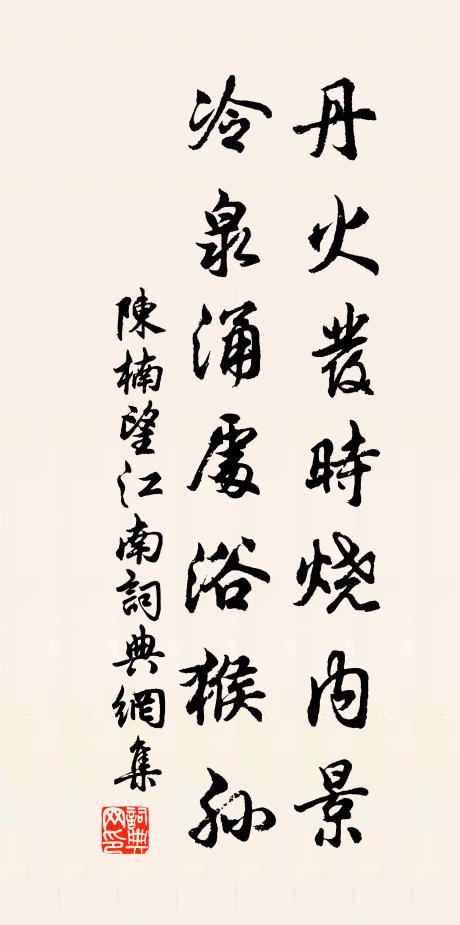 丹火發時燒内景
冷泉涌處浴猴孫
陳楠望江南詞典網集
詞典網印